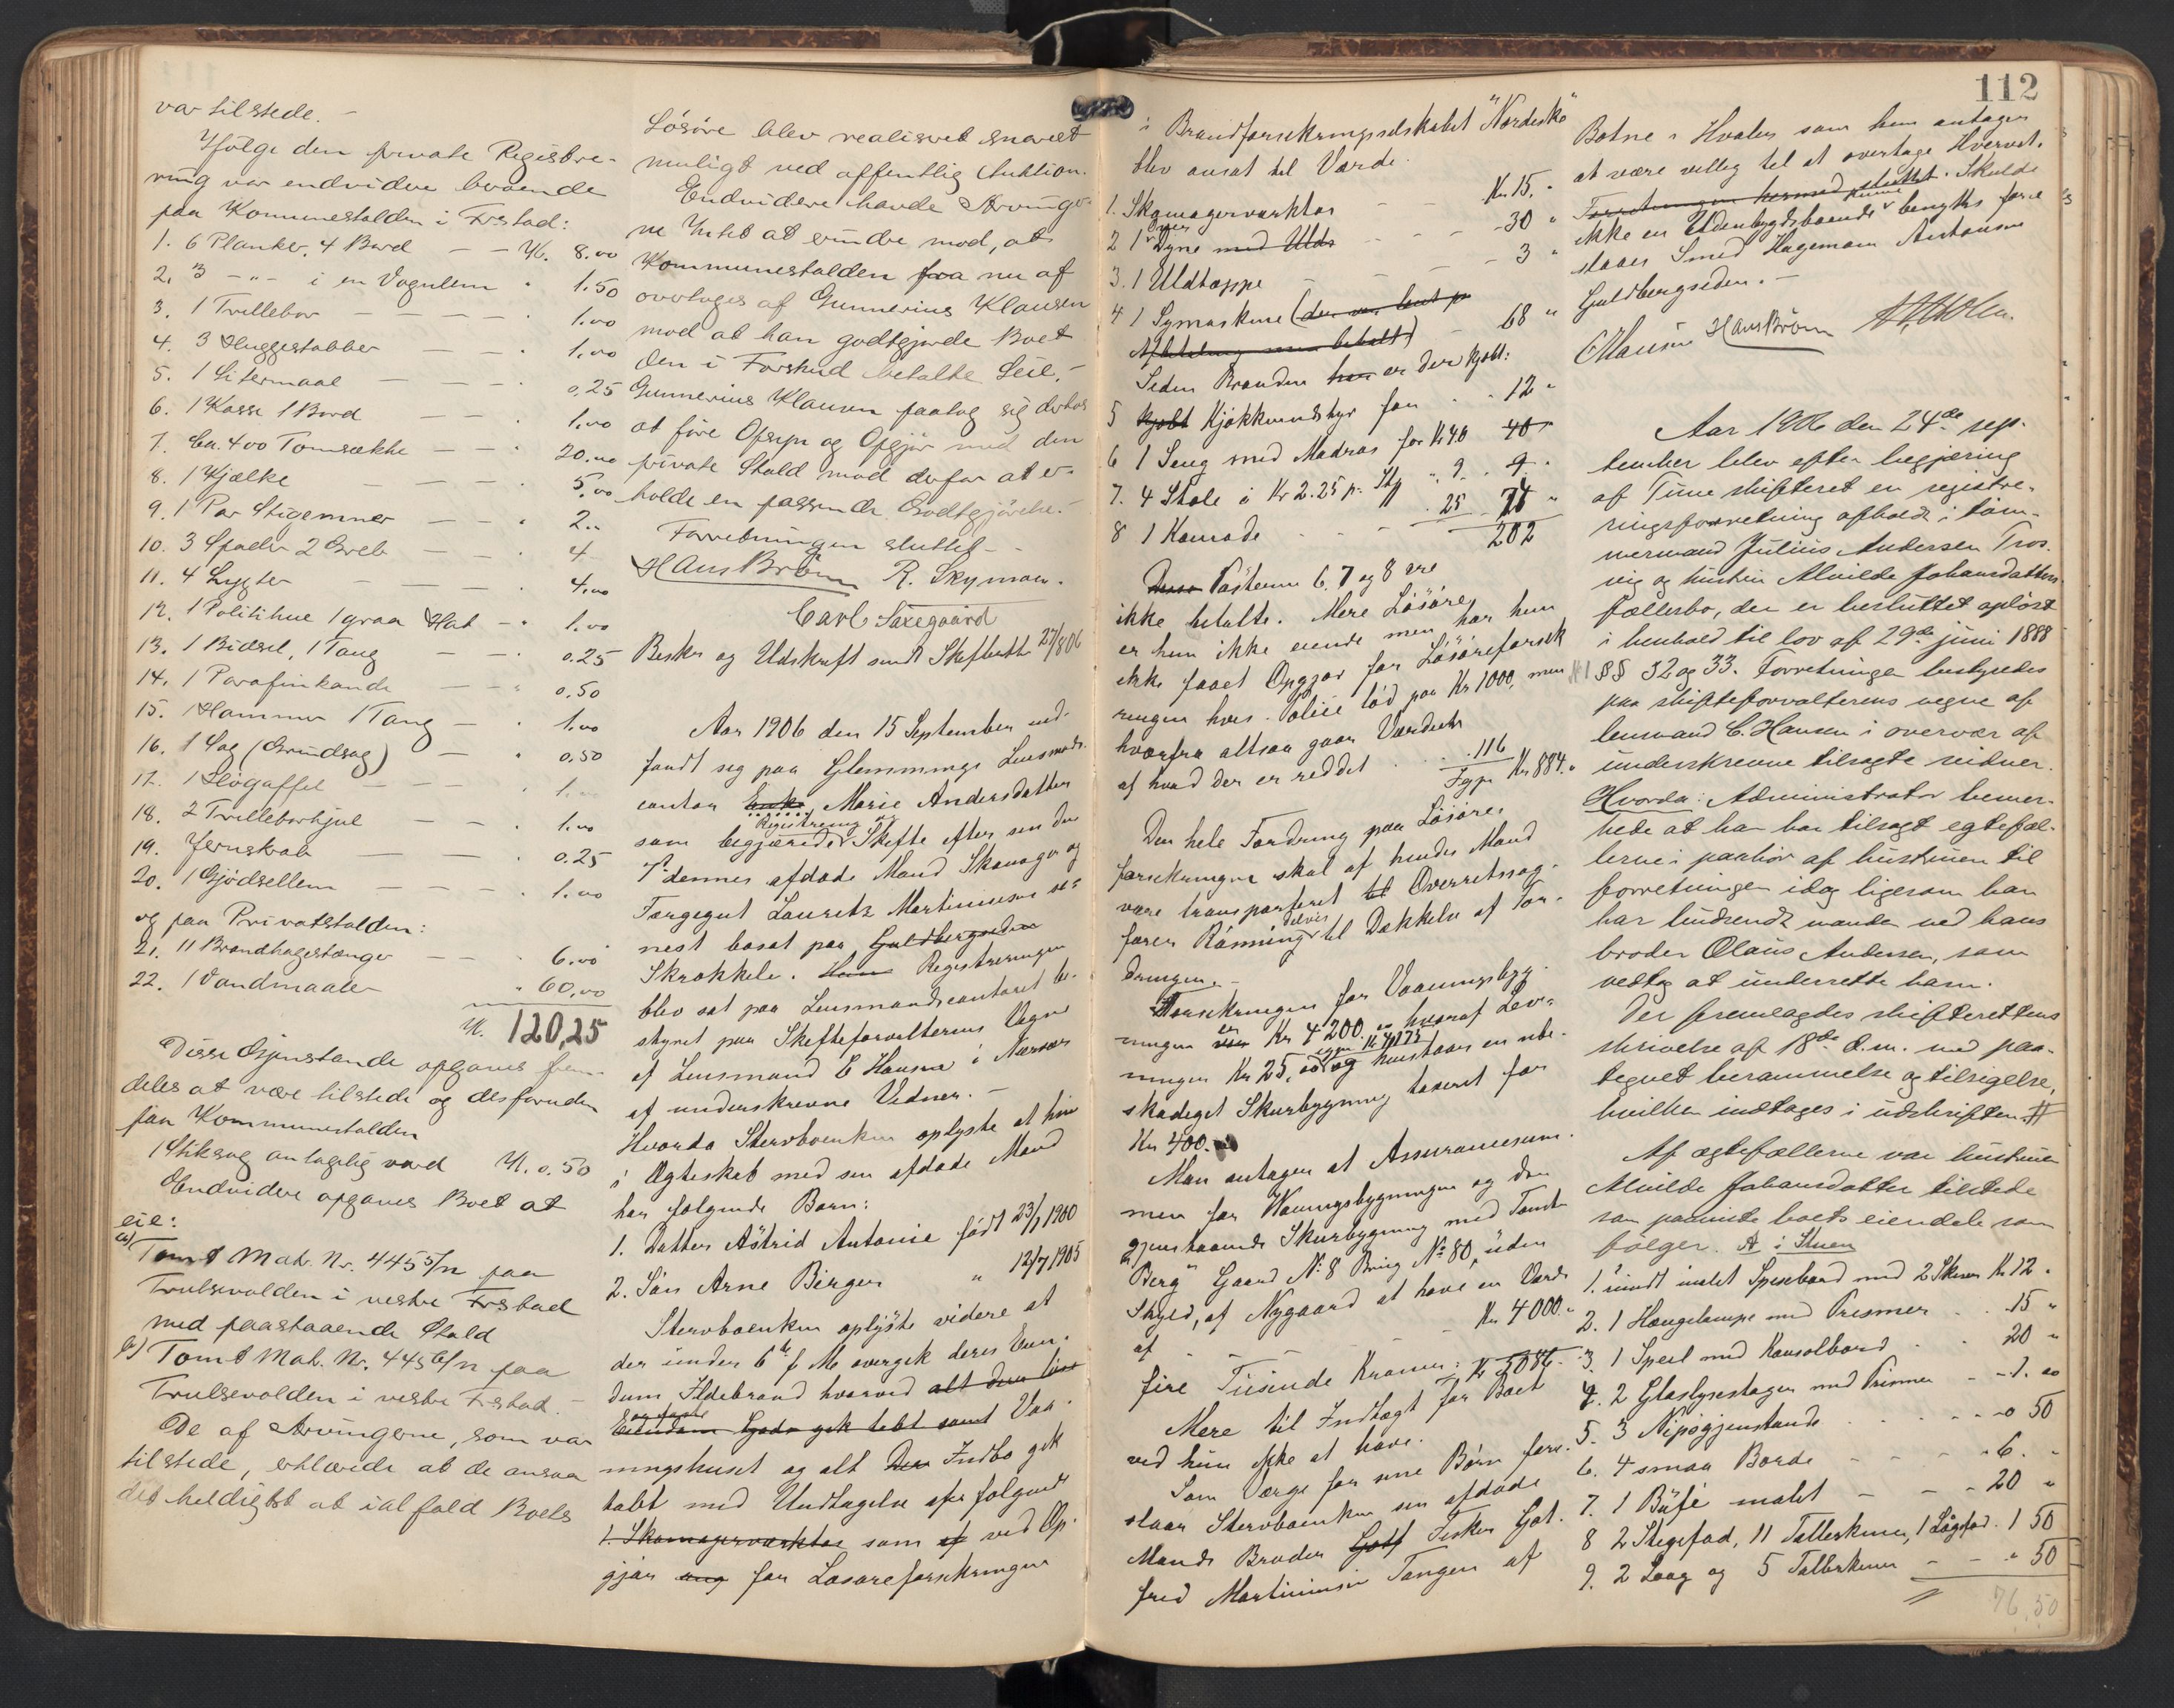 var tilstede. -
Ifölge den private Registre-
ring var endvidere beroende
paa Kommunestalden i Frstad:
1. 6 Planker, 4 Bord - - Kr. 8.00
2. 3 -"- i en Vognlem " 1.50
3. 1 Trillebor - - - - " 1.00
4. 3 Huggestabber - - " 1,00
5. 1 Litermaal - - - " 0,25
6. 1 Kasse 1 Bord - - " 1.00
7. Ca. 400 Tomsække - - " 20.00
8. 1 Kjælke - - - " 5,00
9. 1 Par Stigemner - - " 2..
10. 3 Spader 2 Greb - - " 4
11. 4 Lygter - - - " 4,00
12. 1 Politihue 1 graa Hat - " 1.00
13. 1 Bidsel, 1 Tang - - " 0.25
14. 1 Parafinkande - - " 0,50
15. 1 Hammer 1 Tang - " 1.00
16. 1 Sag (Grindsag) - " 0.50
17. 1 Høgaffel - - - 1.00
18. 2 Trilleborhjul - - " 1.00
19. Jernskrab - - " 0.25
20. 1 Gjødsellem - - - " 1.00
og paa Privatstalden:
21. 11 Brandhagestænger - - " 6.00
22. 1 Vandmaaler " 60,00
Kr. 120,25
Disse Gjenstande opgaves frem-
deles at være tilstede og desforuden
paa Kommunestalden
1 Stiksag antagelig værd Kr. 0.50
Endvidere opgaves Boet at
eie:
a) Tomt Mat. Nr. 445 5/n paa
Trulsevolden i vestre Frstad
med paastaaende Stald
b) Tomt Mat. Nr. 445 6/n paa
Trulsevolden i vestre Frstad. -
De af Arvingerne, som var
tilstede, erklærede at de ansaa
det heldigst at ialfald Boets
Lösöre blev realiseret snarest
muligt ved offentlig Auktion.
Endvidere havde Arvinger-
ne Intet at erindre mod, at
Kommunestalden fra nu af
overtages af Gunnerius Klausen
mod at han godtgjorde Boet
den i Forskud betalte Leie. -
Gunnerius Klausen paatog sig derhos
at före Opsyn og Opgjör med den
private Stald mod derfor at er-
holde en passende Godtgjörelse. -
Forretningen sluttet. -
Hans Bröm R. Skyman.
Carl Saxegaard
Beskr og Udskrift sendt Skifteretten 27/8 06
Aar 1906 den 15 September ind-
fandt sig paa Glemminge Lensmands-
contor Enke, Marie Andersdatter
Registrering og
som begjærede Skifte efter sin den
dennes afdøde Mand Skomager og
Færgegut Lauritz Martiniusen se-
nest bosat paa Guldbergseden
Skrokkele. Ham Registreringen
blev sat paa Lensmandscontoret be-
styret paa Skifteforvalterens Vegne
af Lensmand C Hansen i Nærvær
af underskrevne Vidner. -
Hvorda Sterboenken oplyste at hun
i Ægteskab med sin afdøde Mand
har følgende Børn:
1. Datter Astrid Antonie født 23/1 1900
2. Søn Arne Birger " 12/7 1905
Stervboenken oplyste videre at
der under 6te f M overgik deres Eien-
dom Ildebrand hvorved alt deres løse
Eiendom Gods gik tabt samt Vaa-
ningshuset og alt Den Indbo gik
tabt med Undtagelse af følgende
1. Skomagerværktøi som af ved Op-
gjør ang for Løsøreforsikringen
112
i Brandforsikringsselskabet "Nordiske"
blev ansat til Værdi.
1. Skomagerværktøi - - Kr. 15. "
2 1 Dyne med Ulds - - - 30 "
3. 1 Uldtæppe - - - 3 "
4 1 Symaskine (den var kent pr
Afbetaling men betalt) - 68 "
Siden Branden har er der kjøbt:
5 kjøbt Kjøkkenudstyr for . . 12 "
6 1 Seng med Madras for Kr 40 40
7. 4 Stole á Kr 2.25 pr. Stk ". 9. 9 "
8 1 Komode - - 25 74 "
202
Disse Posterne 6. 7 og 8 ere
ikke betalte. Mere Lösöre
er hun ikke eiende men har hun
ikke faaet Opgjør for Løsøreforsik
ringen hvis Police lød paa Kr 1000, men
hvorfra altsaa gaar Værdien
af hvad der er reddet . . 116
Igjen Kr 884. "
Den hele Fordring paa Løsøre-
forsikringen skal af hendes Mand
være transporteret til Overretssag-
delvis
fører Rönning til Dækkelse af For-
dringen. -
Forsikringen for Vaaningsbyg-
ningen var Kr 4200. " hvoraf Lev-
igjen Kr 4175
ningen Kr 25,00 og henstaar en ube-
skadeget Skurbygning taxeret for
Kr 400.
Man antager at Assurancesum-
men for Vaaningsbygningen og den
gjenstaaende Skurbygning med Tomt
"Berg" Gaard No 8 Brug No 80, uden
Skyld, af Nygaard at have en Værdi
af - - - Kr 4000. "
fire Tusinde Kroner: Kr 5086. -
Mere til Indtægt for Boet
ved hun ikke at have.
Som Værge for sine Børn fore-
slaar Stervboenken sin afdøde
Mands Broder Gotf Fisker Got-
fred Martiniusen Tangen af
Botne i Hvaler som hun antager
at være villig til at overtage Hvervet.
Forretningen hermed sluttet. Skulde
kunne
ikke en Udenbygdsboende benyttes fore
slaaes Smed Hagemann Antonsen
Guldbergseden. -
C Hansen Hans Bröm
Aar 1906 den 24de sep-
tember blev efter begjæring
af Tune skifteret en registre-
ringsforretning afholdt i töm-
mermand Julius Andersen Tros-
vig og hustru Alvilde Johansdatters
fællesbo, der er besluttet oplöst
i henhold til lov af 29de juni 1888
§§ 32 og 33. Forretningen bestyredes
paa skifteforvalterens vegne af
lensmand C. Hansen i overvær af
underskrevne tilsagte vidner.
Hvorda: Administrator bemer-
kede at han har tilsagt egtefæl-
lerne i paahör af hustruen til
forretningen idag ligesom han
har underrdt manden ved hans
broder Olaus Andersen, som
vedtog at underrette ham.
Der fremlagdes skifterettens
skrivelse af 18de d.m. med paa-
tegnet berammelse og tilsigelse,
hvilken indtages i udskriften. #
Af ægtefællerne var hustruen
Alvilde Johansdatter tilstede
som paaviste boets eiendele som
fölger. A i Stuen
1. rundt malet Spisebord med 2 Skuer Kr 12 "
2. 1 Hængelampe med Prismer . 15 "
3. 1 Speil med Konsolbord . . 20 "
4. 2 Glaslysestager med Prismer - - 1. 00
5. 3 Nipsgjenstande . . . - - 0 50
6. 4 smaa Borde - - - - 6. -
7. 1 Büfé malet - - - 20 "
8 2 Stegefad, 11 Tallerkener, 1 Lågfad. 1 50
9. 2 Laag og 5 Tallerkener - - " 50
76,50